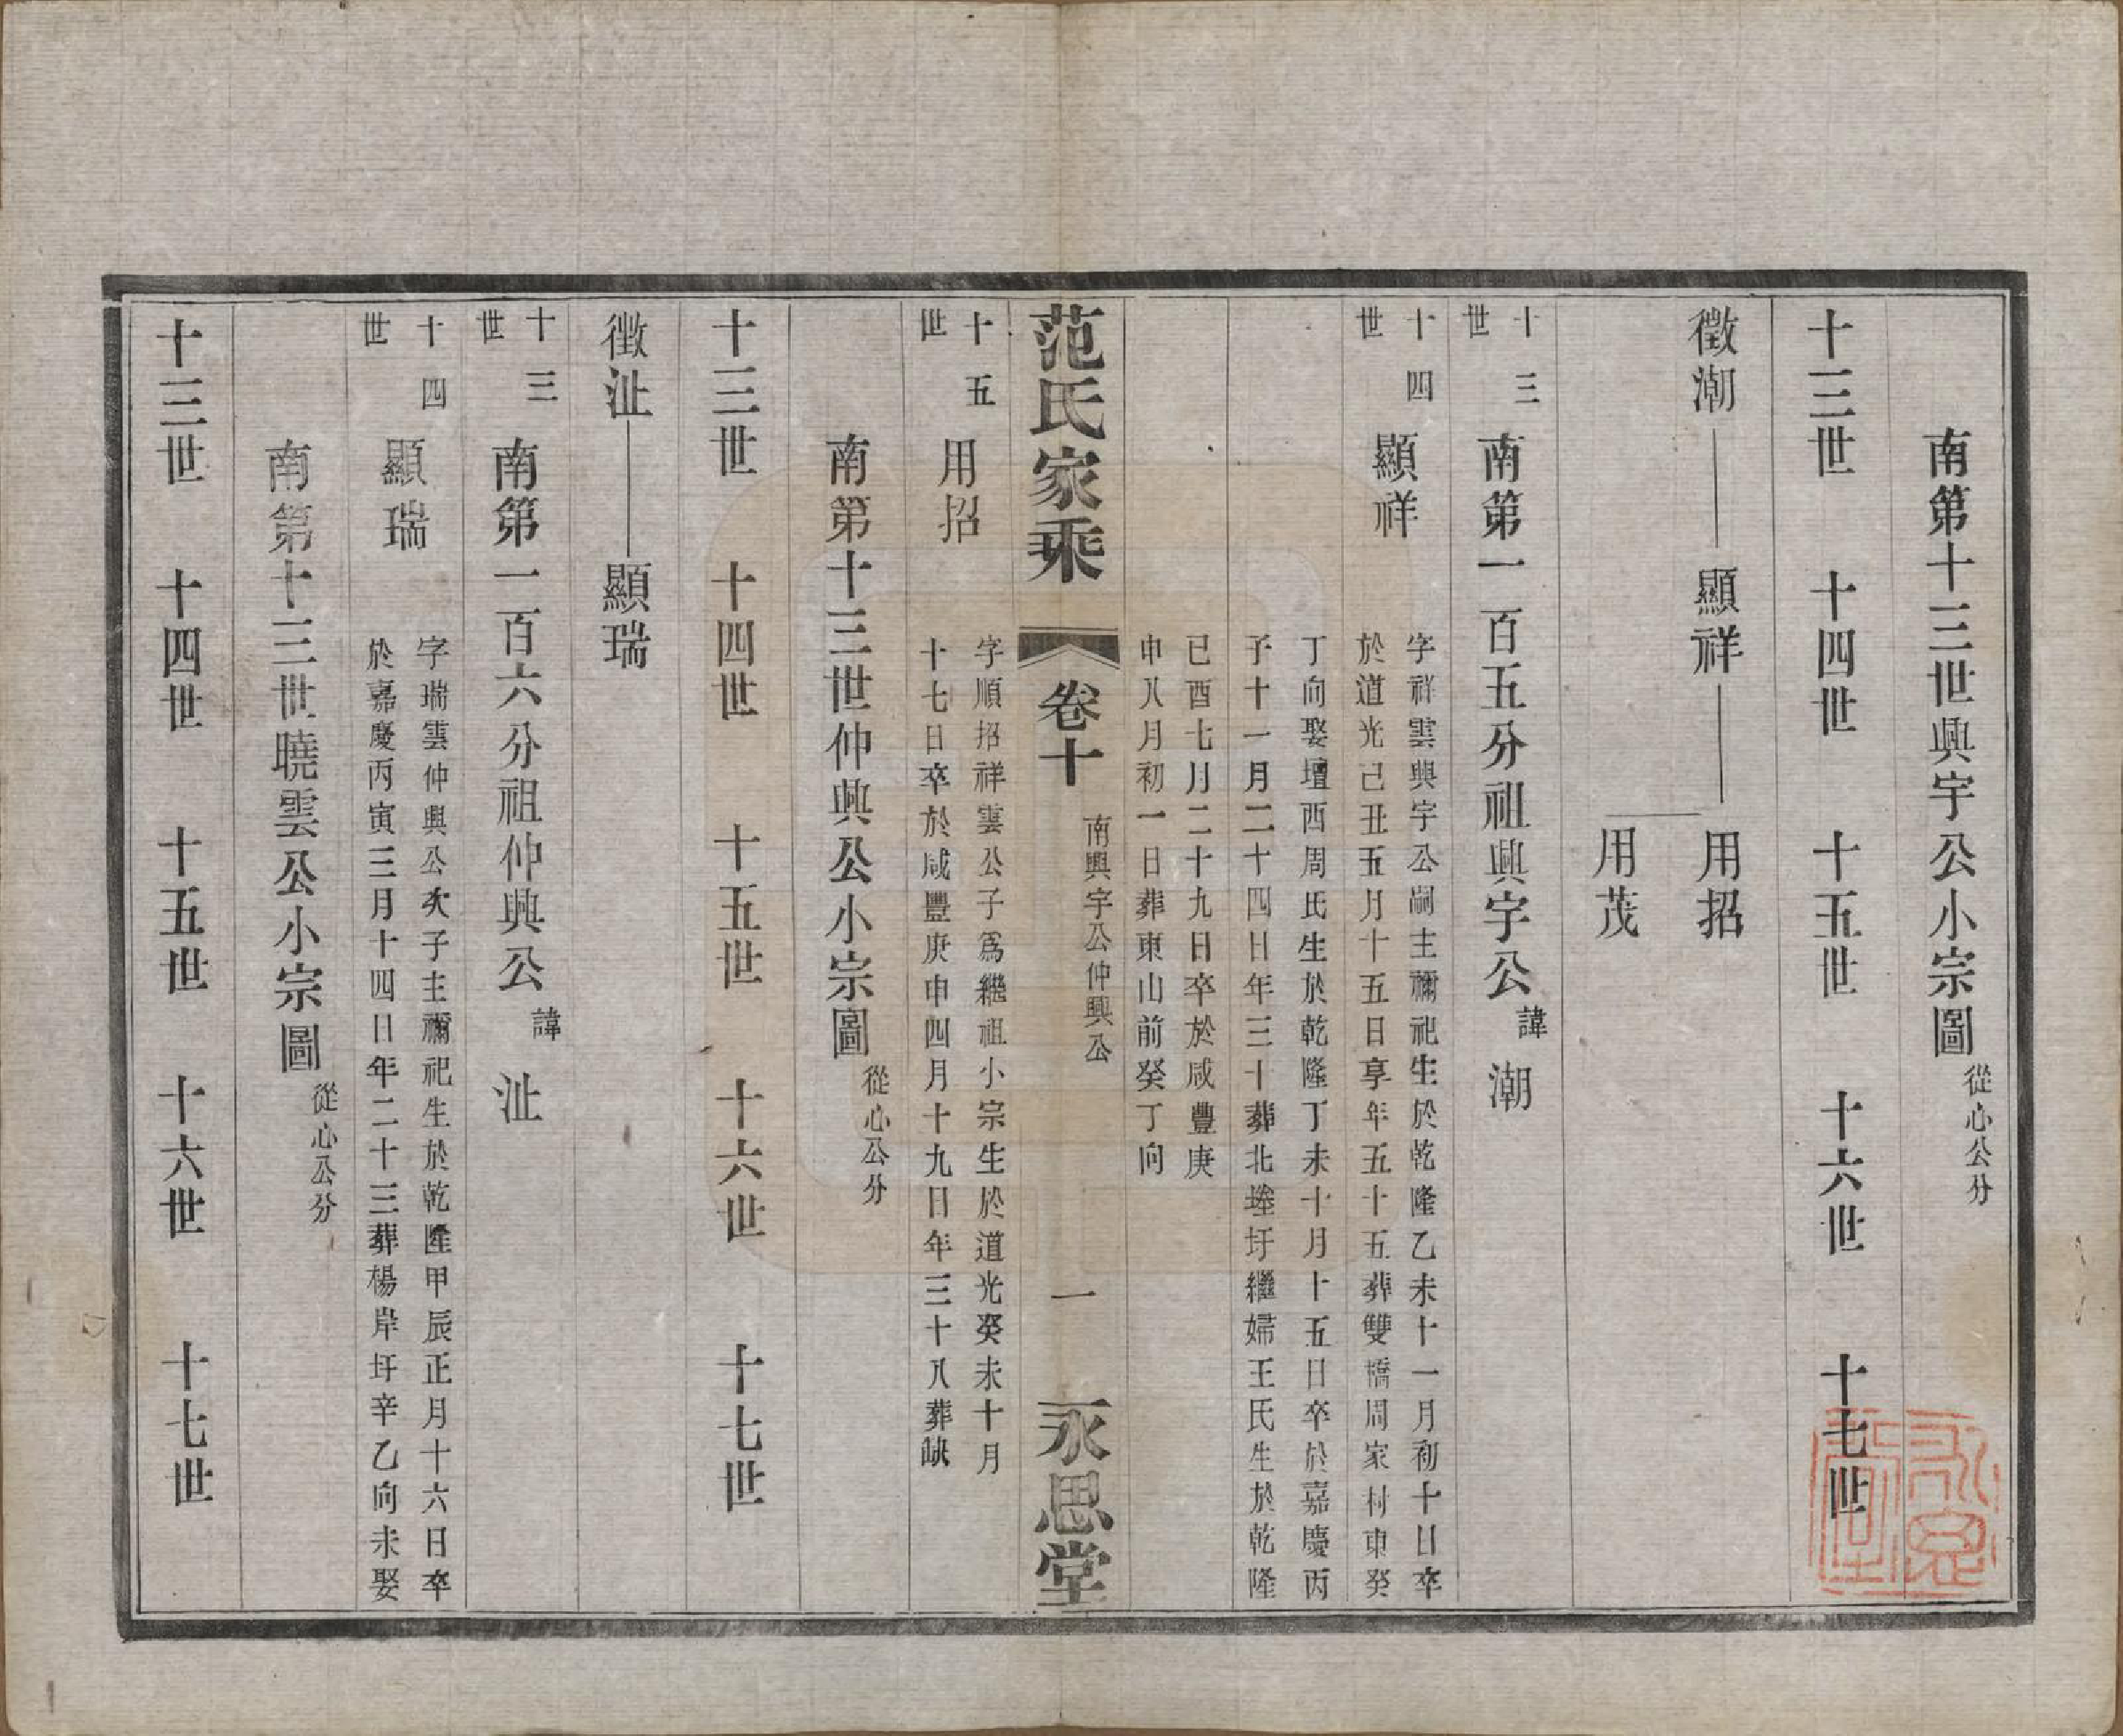 南第十三世興宇公小宗圖 從心公分
十三世 十四世 十五世 十六世 十七世
徵潮 顯祥 用招
用茂
十三世 南第一百五分祖興宇公 諱 潮
十四世 顯祥 字祥雲興宇公嗣主禰祀生於乾隆乙未十一月初十日卒
於道光己丑五月十五日享年五十五葬雙橋周家村東癸
丁向娶壇西周氏生於乾隆丁未十月十五日卒於嘉慶丙
子十一月二十四日年三十葬北埄圩繼婦王氏生於乾隆
已酉七月二十九日卒於咸豐庚
申八月初一日葬東山前癸丁向
范氏家乘 卷十 南興宇公仲興公 一 永思堂
十五世 用招 字順招祥雲公子爲繼祖小宗生於道光癸未十月
十七日卒於咸豐庚申四月十九日年三十八葬缺
南第十三世仲興公小宗圖 從心公分
十三世 十四世 十五世 十六世 十七世
徵沚 顯瑞
十三世 南第一百六分祖仲興公 諱 沚
十四世 顯瑞 字瑞雲仲興公次子主禰祀生於乾隆甲辰正月十六日卒
於嘉慶丙寅三月十四日年二十三葬楊岸圩辛乙向未娶
南第十三世曉雲公小宗圖 從心公分
十三世 十四世 十五世 十六世 十七世